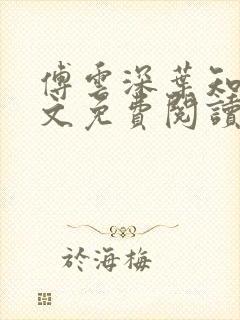 傅雲深葉知
文免費閱讀
於海梅